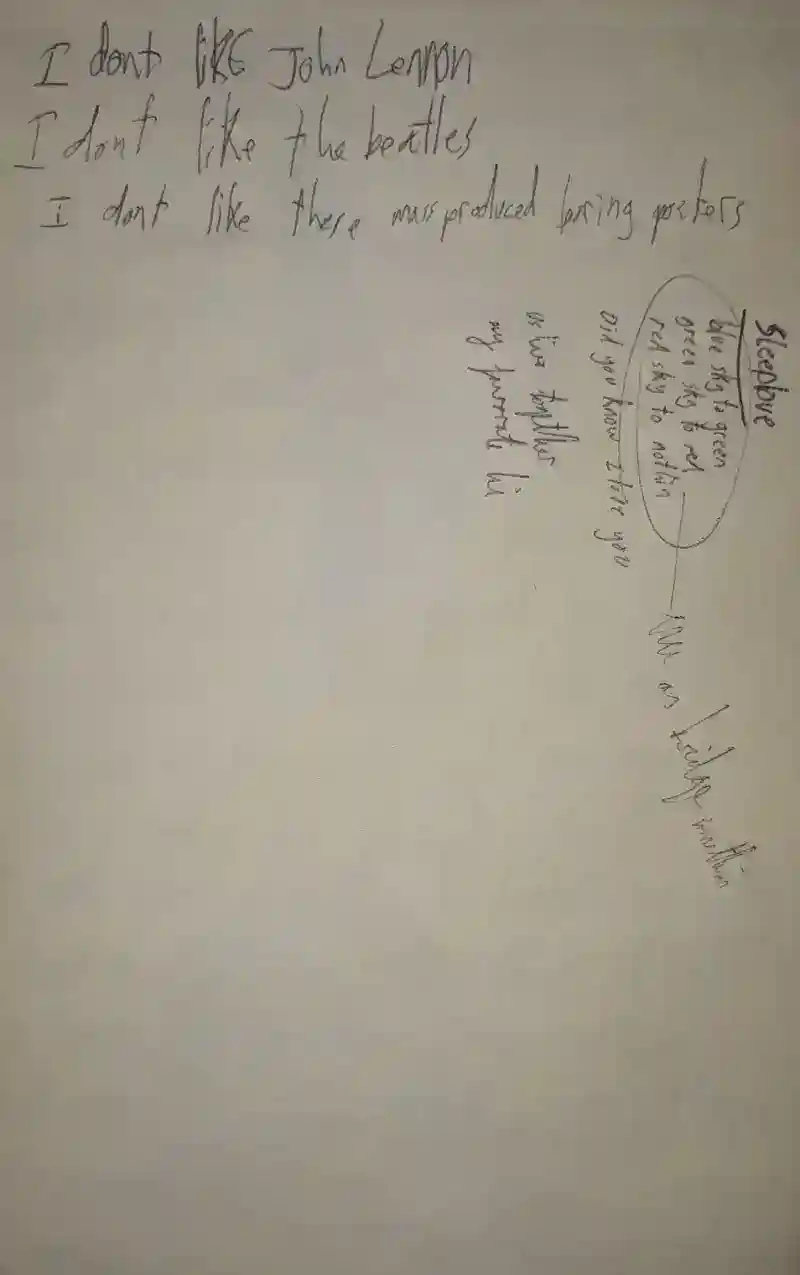 I dont like John Lennon
I dont like the beatles
I dont like these mass produced boring posters
Sleeplove
blue sky to green
green sky to red
red sky to nothin
Did you know I love you
as live together
my favorate hi
as bridge